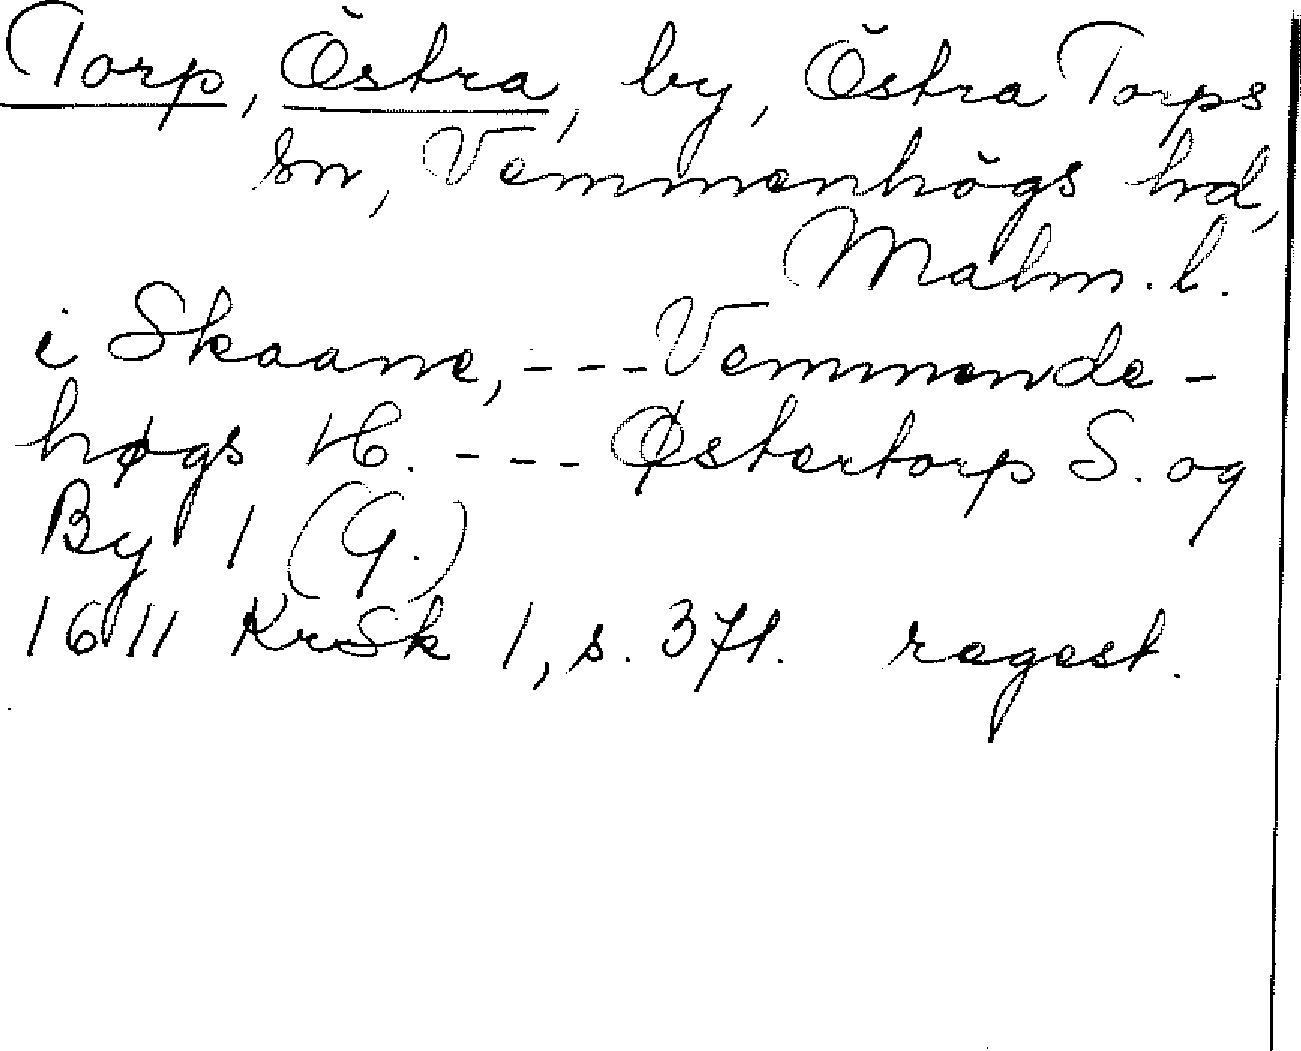 Torp, Östra, by, Östra Torps
sn, Vemmenhögs hd,
Malm. l.
i Skaane, --- Vemmende-
høgs H. --- Østertorp S. og
By 1 (G.)
1611 KrSk 1, s. 371. regest.